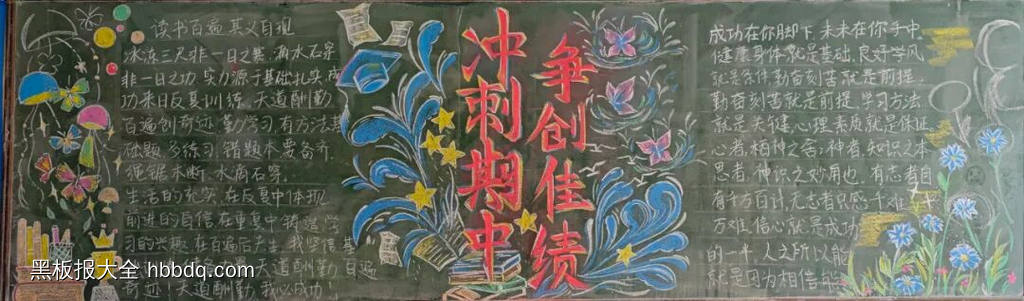 读书百遍 其义自现
冰冻三尺非一日之寒 滴水石穿
非一日之功 实力源于基础扎实 成
功来自反复训练 天道酬勤
百遍创奇迹 勤学习 有方法 基
础题 多练习 错题本要备齐
绳锯木断 水滴石穿
生活的充实 在反复中体现
前进的自信 在重复中铸造 学
习的兴趣 在百遍后产生 我坚信
天道酬勤 百遍
奇迹！天道酬勤 我必成功！
冲刺期中
争创佳绩
成功在你脚下 未来在你手中
健康身体就是基础 良好学风
就是条件 勤奋刻苦就是前提
勤奋刻苦就是前提 学习方法
就是关键 心理素质就是保证
心者 精神之舍 神者 知识之本
思者 神识之妙用也 有志者自
有千方百计 无志者只感千难
万难 信心就是成功
的一半 人之所以能
就是因为相信能
黑板报大全 hbbdq.com